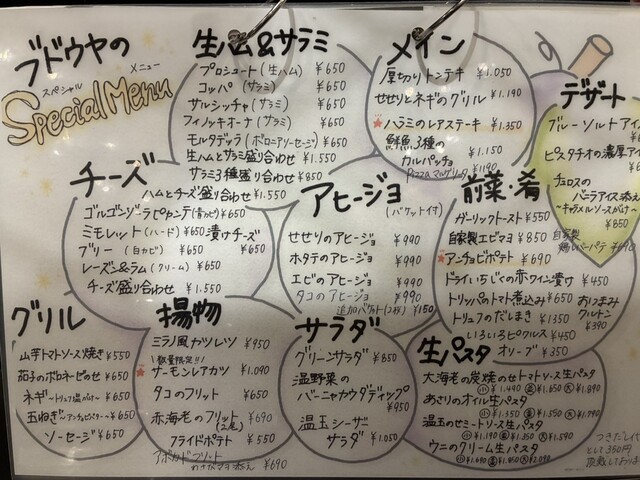 ブドウヤの
スペシャル メニュー
Special Menu
生ハム&サラミ
プロシュート(生ハム) ¥650
コッパ (サラミ) ¥650
サルシッチャ (サラミ) ¥650
フィノッキオーナ (サラミ) ¥650
モルタデッラ (ボロニアソーセージ) ¥650
生ハムとサラミ盛り合わせ ¥1.550
サラミ3種盛り合わせ ¥850
ハムとチーズ盛り合わせ ¥1.550
メイン
厚切りトンテキ ¥1.050
せせりとネギのグリル ¥1.190
ハラミのレアステーキ ¥1.350
鮮魚3種の
カルパッチョ ¥1.150
Pizza マルゲリータ ¥1190
デザート
ブルーソルトアイス
ピスタチオの濃厚アイ
チュロスの
バニラアイス添え
〜キャラメルソースがけ〜
¥850
チーズ
ゴルゴンゾーラピカンテ(青かび) ¥650
ミモレット (ハード) ¥650
漬けチーズ ¥650
ブリー (白カビ) ¥650
レーズン&ラム (クリーム) ¥650
チーズ盛り合わせ ¥1.550
アヒージョ
(バケット付)
せせりのアヒージョ ¥990
ホタテのアヒージョ ¥990
エビのアヒージョ ¥990
タコのアヒージョ ¥990
追加バケット(2枚) ¥150
前菜・肴
ガーリックトースト ¥550
自家製エビマヨ ¥850
自家製
鶏レバーパテ ¥690
アンチョビポテト ¥690
ドライいちじくの赤ワイン漬け ¥450
トリッパのトマト煮込み ¥650
トリュフのだしまき ¥1350
いろいろピクルス ¥450
オリーブ ¥350
おつまみ
クルトン
¥390
グリル
山芋トマトソース焼き ¥550
茄子のボロネーゼのせ ¥650
ネギ〜トリュフ塩がけ〜 ¥650
玉ねぎ〜アンチョビバター〜 ¥650
ソーセージ ¥650
揚物
ミラノ風カツレツ ¥950
数量限定!!
サーモンレアカツ ¥1.090
タコのフリット ¥650
赤海老のフリット ¥690
(2尾)
フライドポテト ¥550
アボカドフリット
わさびマヨ添え ¥690
サラダ
グリーンサラダ ¥850
温野菜の
バーニャカウダディップ
¥950
温玉シーザー
サラダ ¥1.050
生パスタ
大海老の炭焼のせトマトソース生パスタ
小¥1.440 並¥1.650 大¥1.890
あさりのオイル生パスタ
小¥1.150 並¥1.350 大¥1.590
温玉のせミートソース生パスタ
小¥1.190 並¥1.350 大¥1.590
ウニのクリーム生パスタ
小¥1.690 並¥1.850 大¥2.090
つきだし代
として350円
頂戴しております